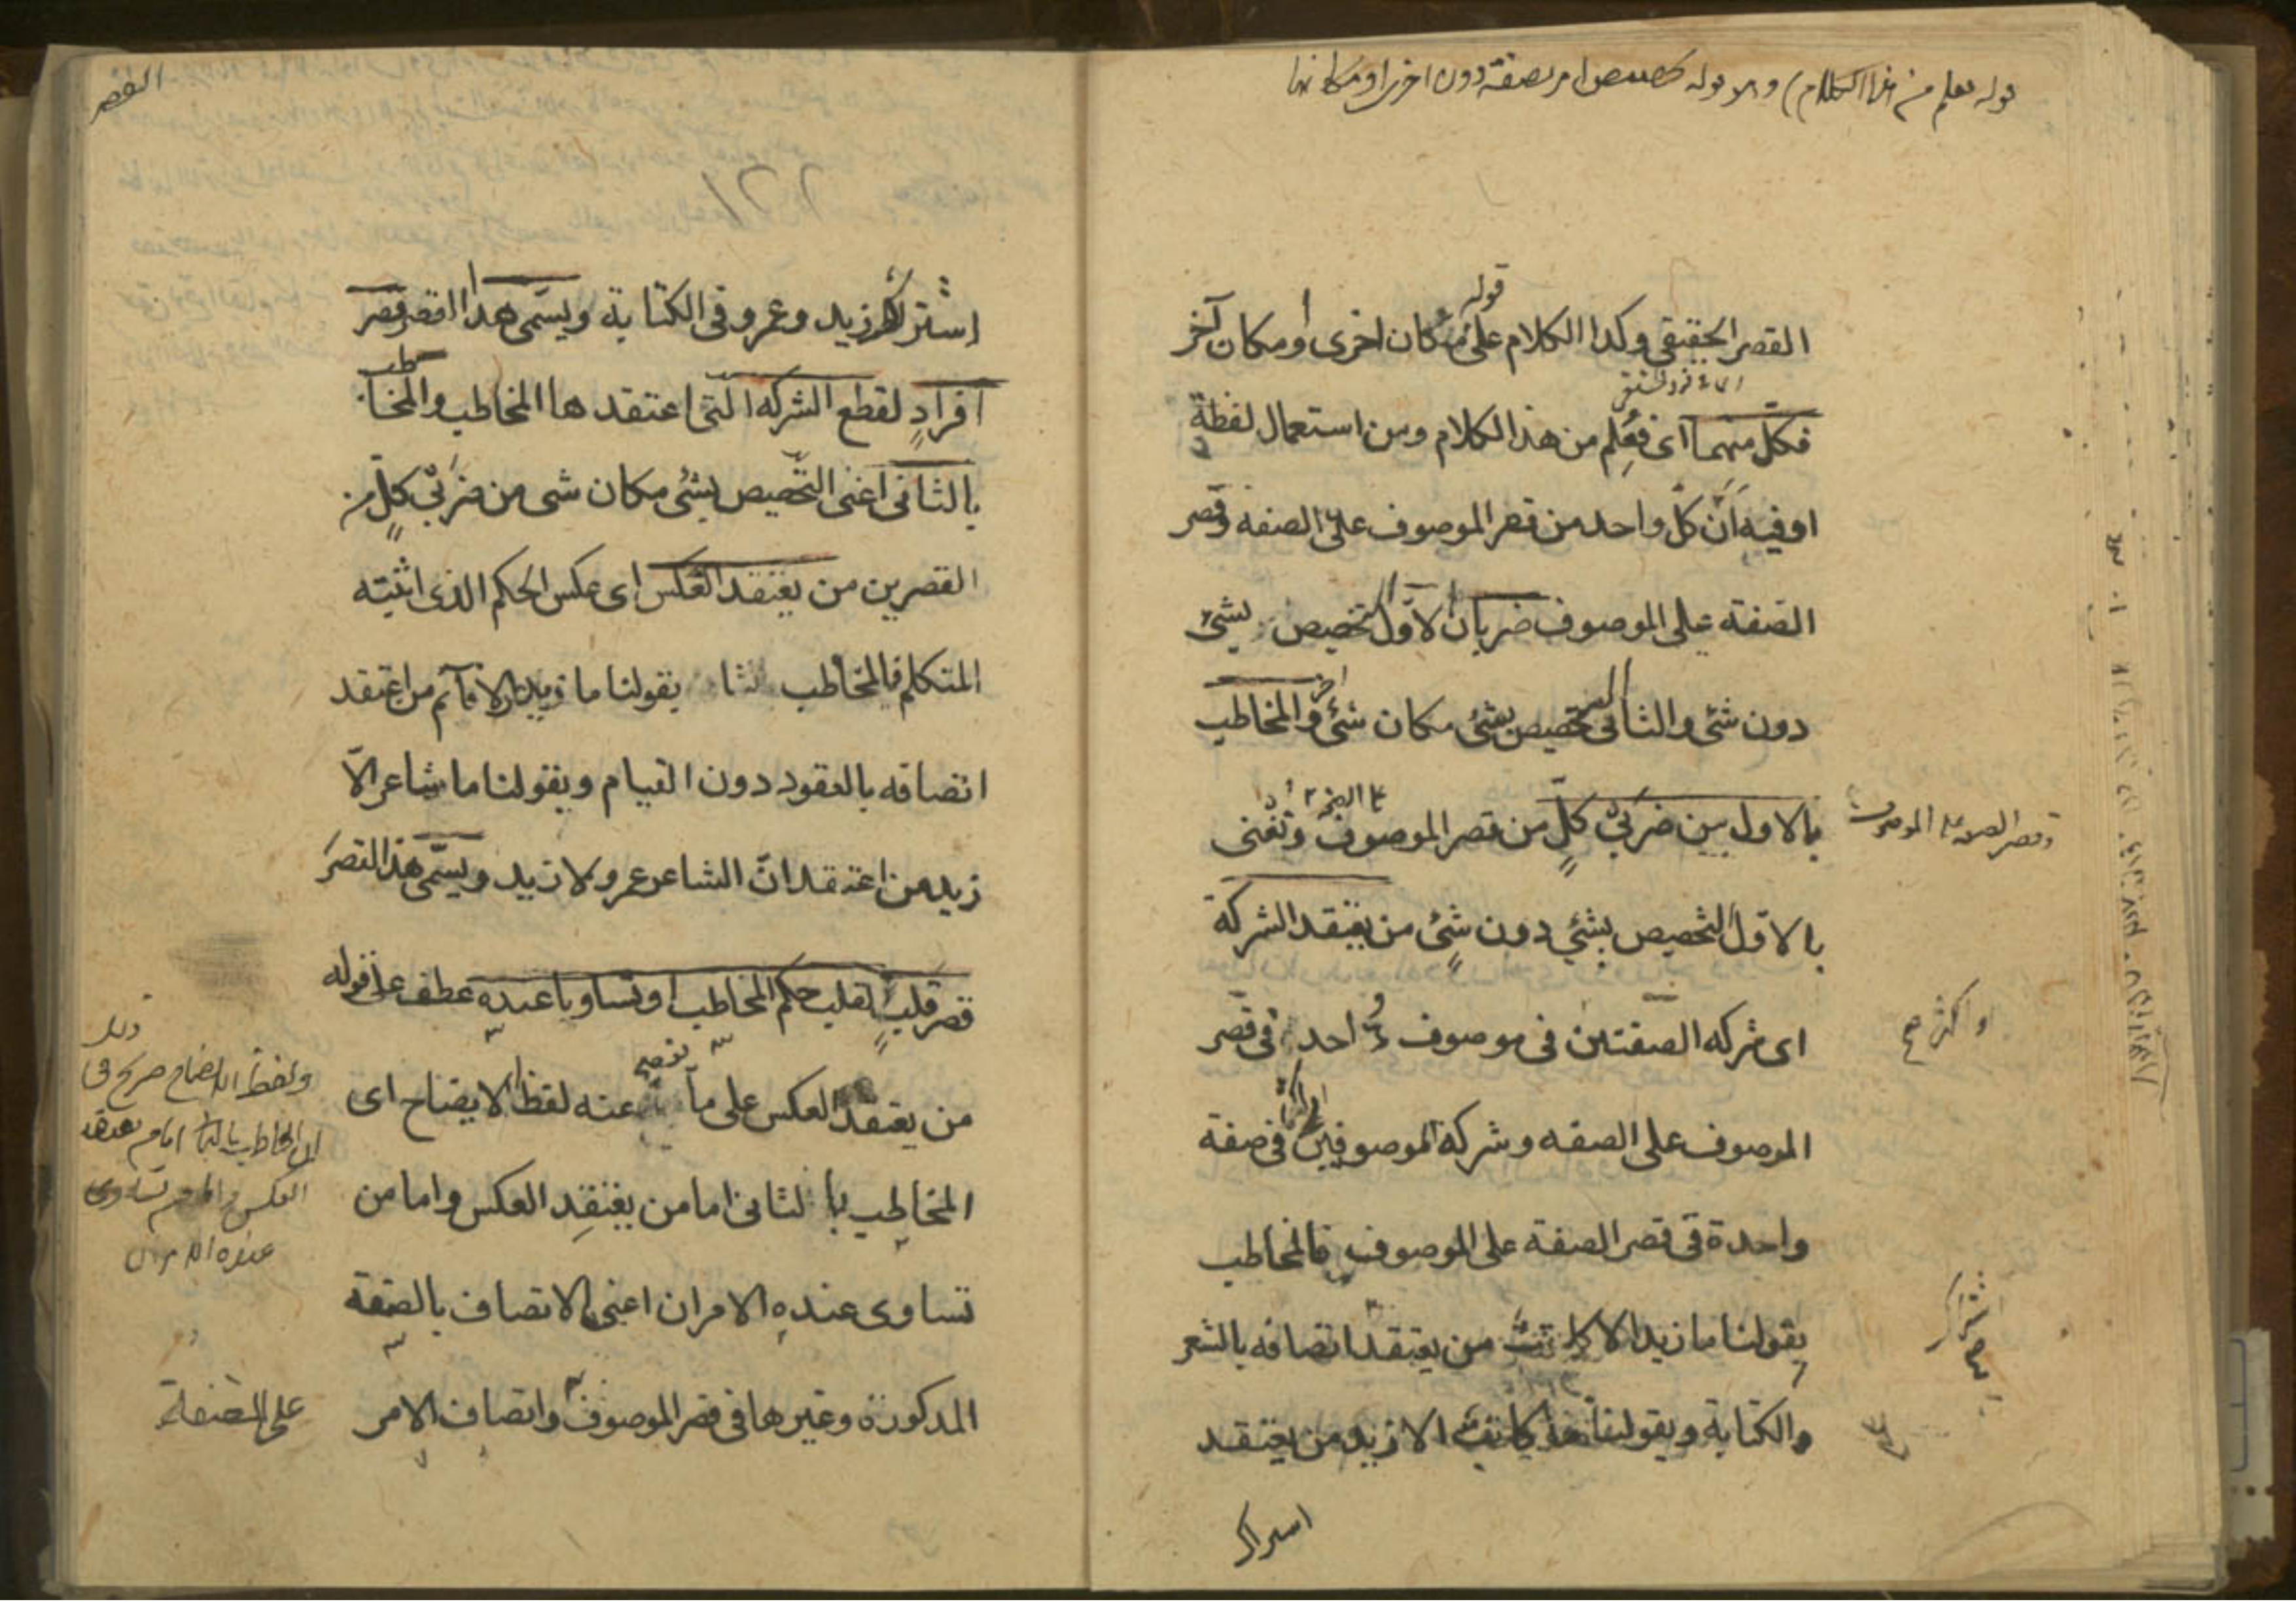 قوله فعلم من هذا الكلام) وهو قوله تخصيص امر بصفة دون اخرى او مكانها
القصر الحقيقى وكذا الكلام على قوله مكان اخرى او مكان آخر
فكلّ منهما اى فعُلِم من هذا الكلام ومن استعمال لفظة
او فيه أنّ كلّ واحد من قصر الموصوف على الصفه وقصر
الصّفة على الموصوف ضربان الاوّل التخصيص بشئ
دون شئ والثانى التخصيص بشئ مكان شئ آخر والمخاطب
بالاول بين ضربىْ كلٍّ من قصر الموصوف على الصفة ونعنى
وقصر الصفة على الموصوف
بالاوّل التخصيص بشئ دون شئٍ من يعتقد الشركة
اى شركه الصّفتين فى موصوف واحد فى قصر
او اكثر صح
الموصوف على الصفه وشركة الموصوفين او اكثر فى صفة
واحدة فى قصر الصفة على الموصوف فالمخاطب
بقولنا ما زيد الا كاتبٌ من يعتقد اتصافه بالشعر
والكتابة وبقولنا ما كاتب الا زيد من يعتقد
اشتراك
القصر
إشتراك زيد وعمرو فى الكتابة ويسمّى هذا القصر قصر
افرادٍ لقطع الشركه التى اعتقدها المخاطب والمخاطب
بالثانى اعنى التّخصيص بشئ مكان شى من ضربىْ كلٍّ من
القصرين من يعتقد العكس اى عكس الحكم الذى اثبته
المتكلم فالمخاطب بقولنا ما زيد الا قآئم من اعتقد
اتصافه بالقعود دون القيام وبقولنا ما شاعر الاّ
زيد من اعتقد انّ الشاعر عمرو لا زيد ويسمّى هذا القصرَ
قصر قلبٍ لقلب حكم المخاطب او تساويا عنده عطف على قوله
من يعتقد العكس على ما يفصح عنه لفظ الايضاح اى
المخاطب بالثانى اما من يعتقِد العكس واما من
تساوى عنده الامران اعنى الاتصاف بالصّفة
المذكورة وغيرها فى قصر الموصوف واتصاف الامر
ولفظ الايضاح صريح فى ذلك
ان المخاطب بالثانى اما من يعتقد
العكس واما من تساوى
عنده الامران
على الصّفة